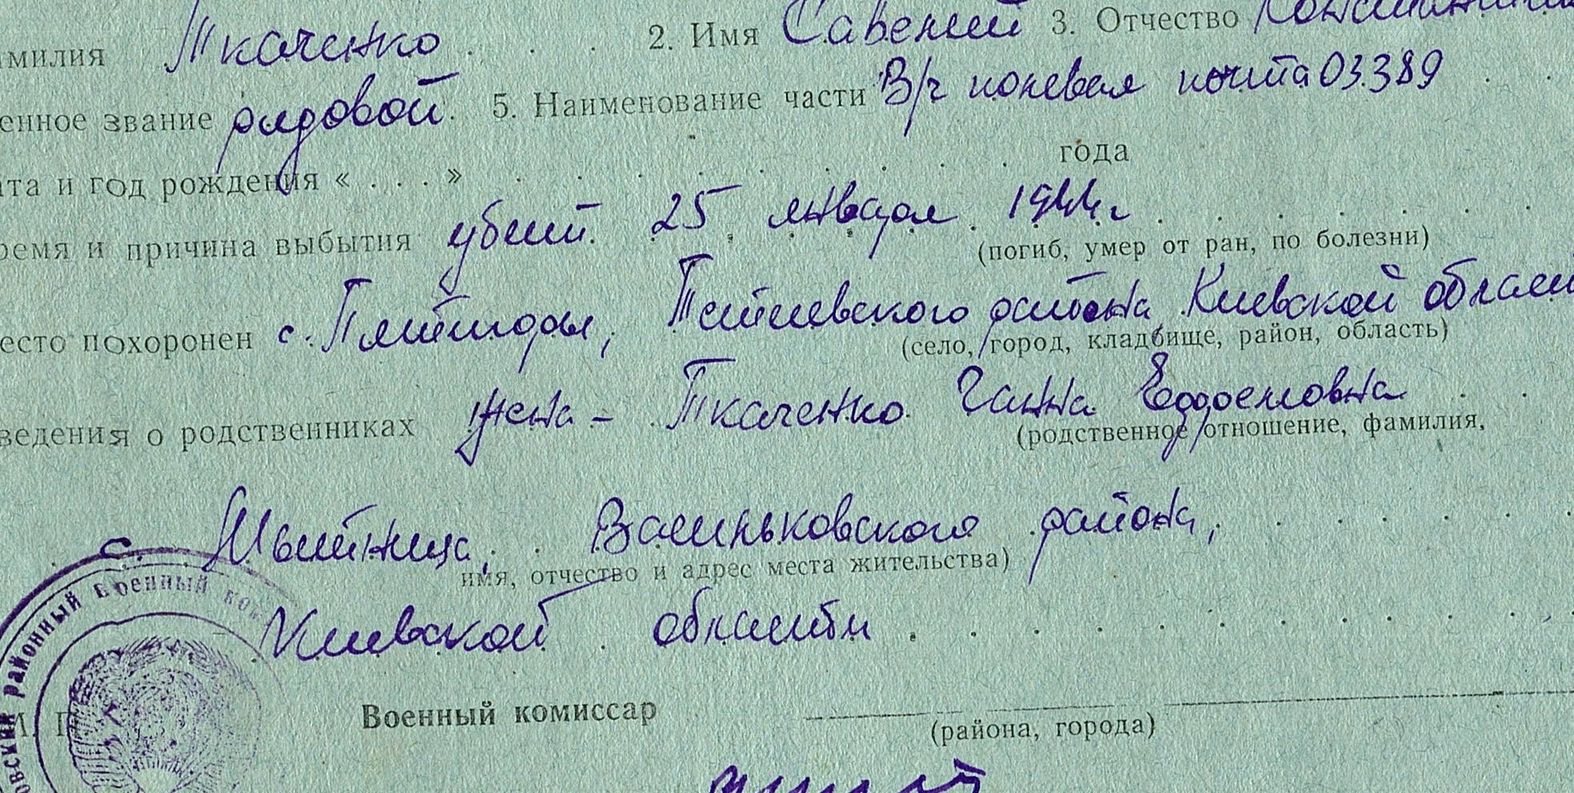 амилия Ткаченко 2. Имя Савелий 3. Отчество
енное звание рядовой. 5. Наименование части В/ч полевая почта 03389
ата и год рождения « . . . » года
ремя и причина выбытия убит 25 января 1944г
(погиб, умер от ран, по болезни)
есто похоронен с. Пятигоры, Тетиевского района Киевской област
(село, город, кладбище, район, область)
ведения о родственниках жена – Ткаченко Ганна
(родственное отношение, фамилия,
с. Мытница, Васильковского района,
имя, отчество и адрес места жительства)
Киевской области
районный военный ком
М. П.
Военный комиссар
(района, города)